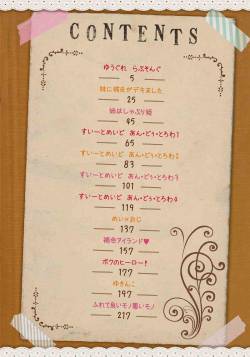 CONTENTS
ゆうぐれ らぶそんぐ
5
妹に彼氏がデキました
25
姉はしゃぶり姫
45
すいーとめいど あん・どぅ・とろわ1
65
すいーとめいど あん・どぅ・とろわ2
83
すいーとめいど あん・どぅ・とろわ3
101
すいーとめいど あん・どぅ・とろわ4
119
めい×おじ
137
補合アイランド♥
157
ボクのヒーロー!
177
ゆきんこ
197
ふれて良いモノ悪いモノ
217